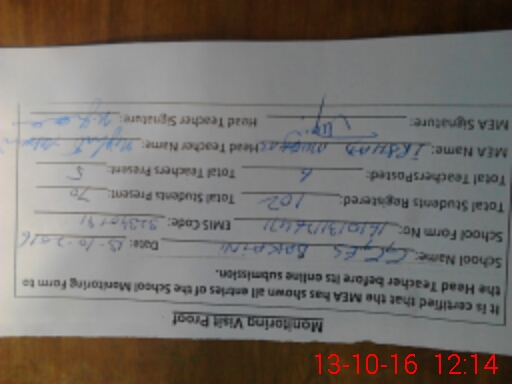 Monitoring Visit Proof
It is certified that the MEA has shown all entries of the School Monitoring Form to
the Head Teacher before its online submission.
School Name: GGES Date: 13-10-2016
School Form No: EMIS Code:
Total Students Registered: 102 Total Students Present: 70
Total TeachersPosted: 6 Total Teachers Present: 5
MEA Name: Head Teacher Name:
MEA Signature: Head Teacher Signature:
13-10-16 12:14